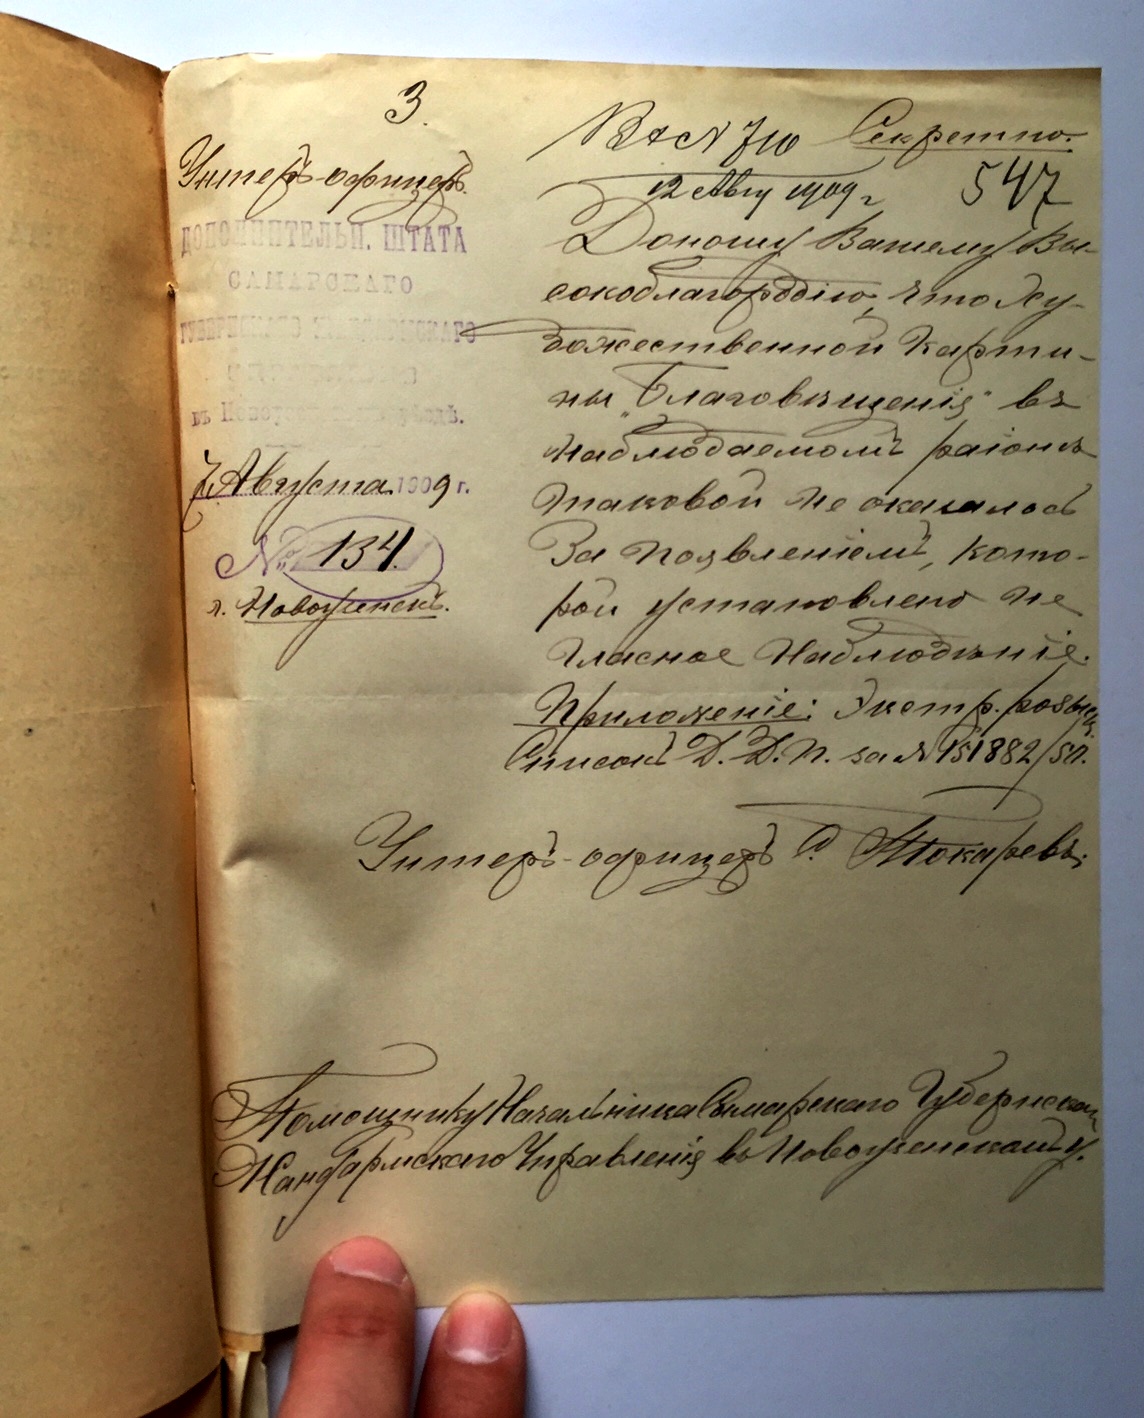 3.
Унтеръ-офицеръ
ДОПОЛНИТЕЛЬН. ШТАТА
САМАРСКАГО
ГУБЕРНСКАГО ЖАНДАРМСКАГО
въ Новоузенск уѣздѣ.
7 Августа 1909 г.
№ 134.
г. Новоузенскъ.
710 Секретно.
12 Авгу 1909 г 547
Доношу Вашему Вы-
сокоблагородію, что Ху-
дожественной карти-
ны „Благовѣщенія" въ
наблюдаемомъ раіонѣ
таковой не оказалось
За появленіемъ, кото-
рой установлено не
гласное наблюдѣніе.
Приложеніе: Экстр. розыск.
Списокъ Д. Д. П. за № 151882/50.
Унтеръ-офицеръ Токаревъ.
Помощнику Начальника Самарскаго Губернскаго
Жандармскаго Управленія въ Новоузенскомъ у.